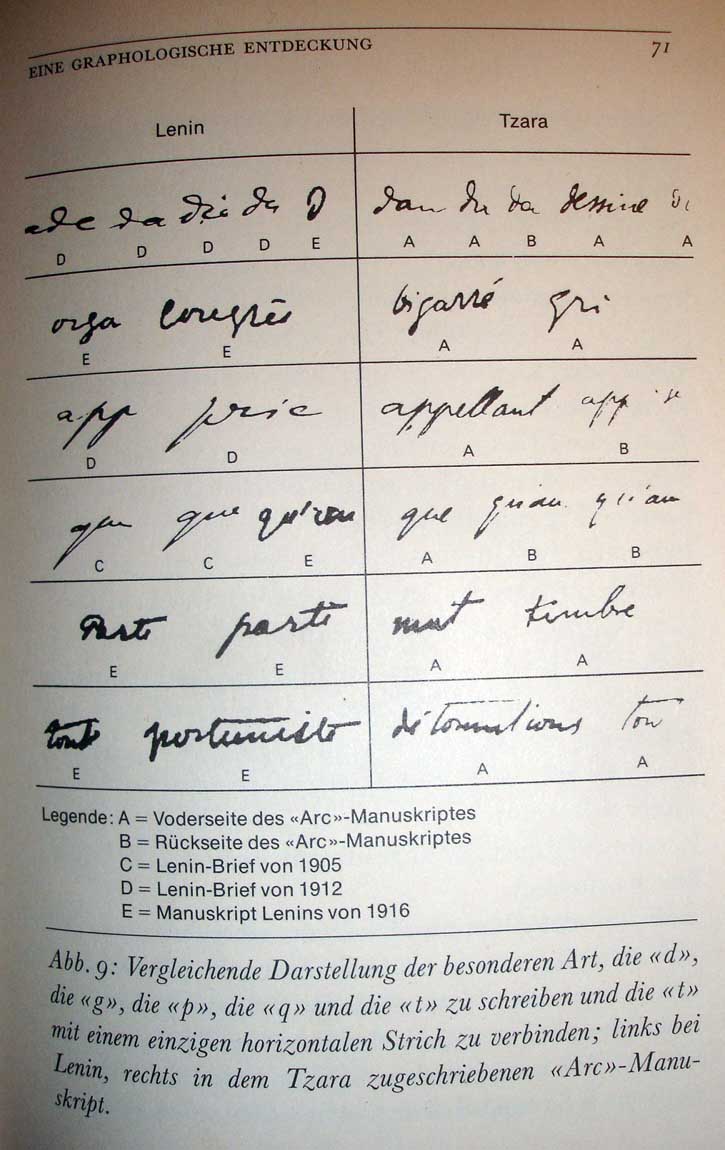 EINE GRAPHOLOGISCHE ENTDECKUNG 71
Lenin Tzara
ade da dzi du D dan du da dessine di
D D D D E A A B A A
orga Congrès bigarré gri
E E A A
app pric appellant app
D D A B
que que qu'on que qu'au qu'au
C C E A B B
Parte parti mut timbre
E E A A
toute portuniste détonnations ton
E E A A
Legende: A = Voderseite des «Arc»-Manuskriptes
B = Rückseite des «Arc»-Manuskriptes
C = Lenin-Brief von 1905
D = Lenin-Brief von 1912
E = Manuskript Lenins von 1916
Abb. 9: Vergleichende Darstellung der besonderen Art, die «d»,
die «g», die «p», die «q» und die «t» zu schreiben und die «t»
mit einem einzigen horizontalen Strich zu verbinden; links bei
Lenin, rechts in dem Tzara zugeschriebenen «Arc»-Manu-
skript.